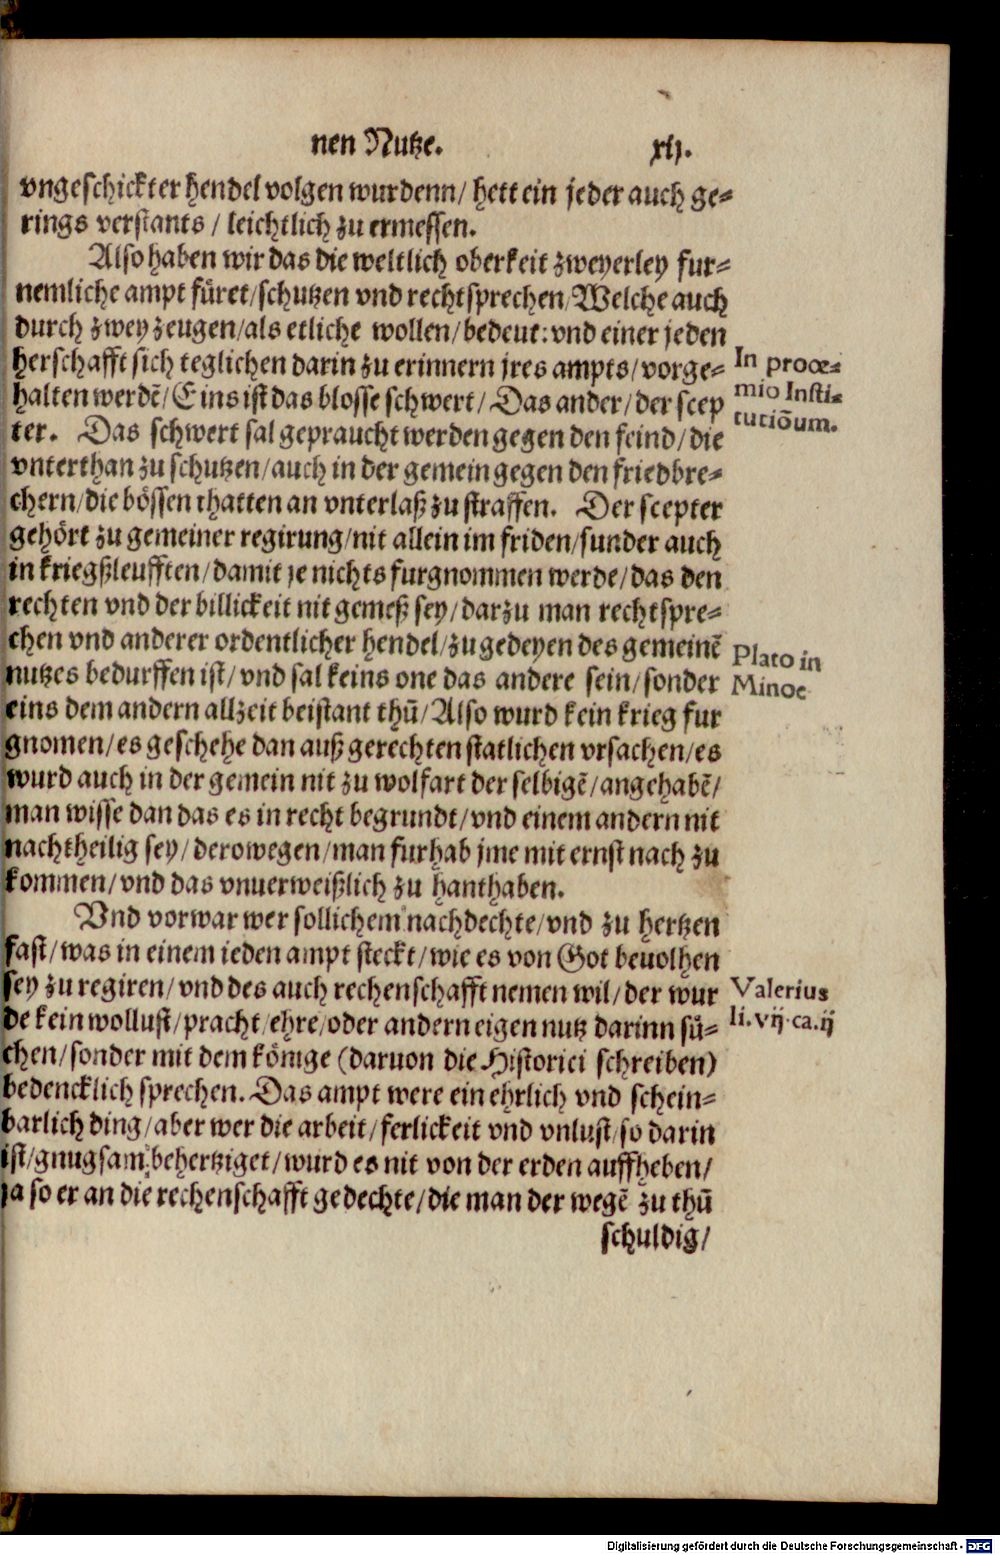 nen Nutze. xij.
vngeschickter hendel volgen wurdenn/ hett ein jeder auch ge⸗
rings verstants / leichtlich zu ermessen.
Also haben wir das die weltlich oberkeit zweyerley fur⸗
nemliche ampt füret/schutzen vnd rechtsprechen/Welche auch
durch zwey zeugen/als etliche wollen/bedeut: vnd einer jeden
herschafft sich teglichen darin zu erinnern jres ampts/vorge⸗
halten werdē/Eins ist das blosse schwert/ Das ander/der scep
ter. Das schwert sal gepraucht werden gegen den feind/die
vnterthan zu schutzen/auch in der gemein gegen den friedbre⸗
chern/die bössen thatten an vnterlaß zu straffen. Der scepter
gehört zu gemeiner regirung/nit allein im friden/sunder auch
in kriegßleufften/damit je nichts furgnommen werde/das den
rechten vnd der billickeit nit gemeß sey/darzu man rechtspre⸗
chen vnd anderer ordentlicher hendel/zu gedeyen des gemeinē
nutzes bedurffen ist/vnd sal keins one das andere sein/sonder
eins dem andern allzeit beistant thū/Also wurd kein krieg fur
gnomen/es geschehe dan auß gerechten statlichen vrsachen/es
wurd auch in der gemein nit zu wolfart der selbigē/angehabē/
man wisse dan das es in recht begrundt/vnd einem andern nit
nachtheilig sey/derowegen/man furhab jme mit ernst nach zu
kommen/vnd das vnuerweißlich zu hanthaben.
Vnd vorwar wer sollichem nachdechte/vnd zu hertzen
fast/was in einem ieden ampt steckt/wie es von Got beuolhen
sey zu regiren/vnd des auch rechenschafft nemen wil/der wur
de kein wollust/pracht/ehre/oder andern eigen nutz darinn sü⸗
chen/sonder mit dem könige (daruon die Historici schreiben)
bedencklich sprechen. Das ampt were ein ehrlich vnd schein⸗
barlich ding/aber wer die arbeit/ferlickeit vnd vnlust/so darin
ist/gnugsam behertziget/wurd es nit von der erden auffheben/
ja so er an die rechenschafft gedechte/die man der wegē zu thū
schuldig/
In prooe⸗
mio Insti⸗
tutiōum.
Plato in
Minoe
Valerius
li. vij. ca. ij
Digitalisierung gefördert durch die Deutsche Forschungsgemeinschaft - DFG